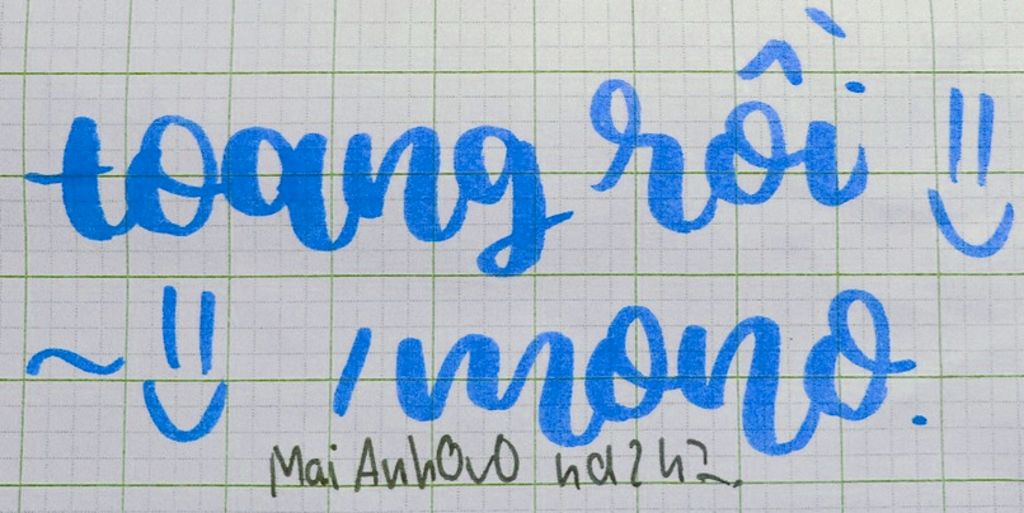 toang rồi =)
~ =) /mono.
Mai AnhOvO